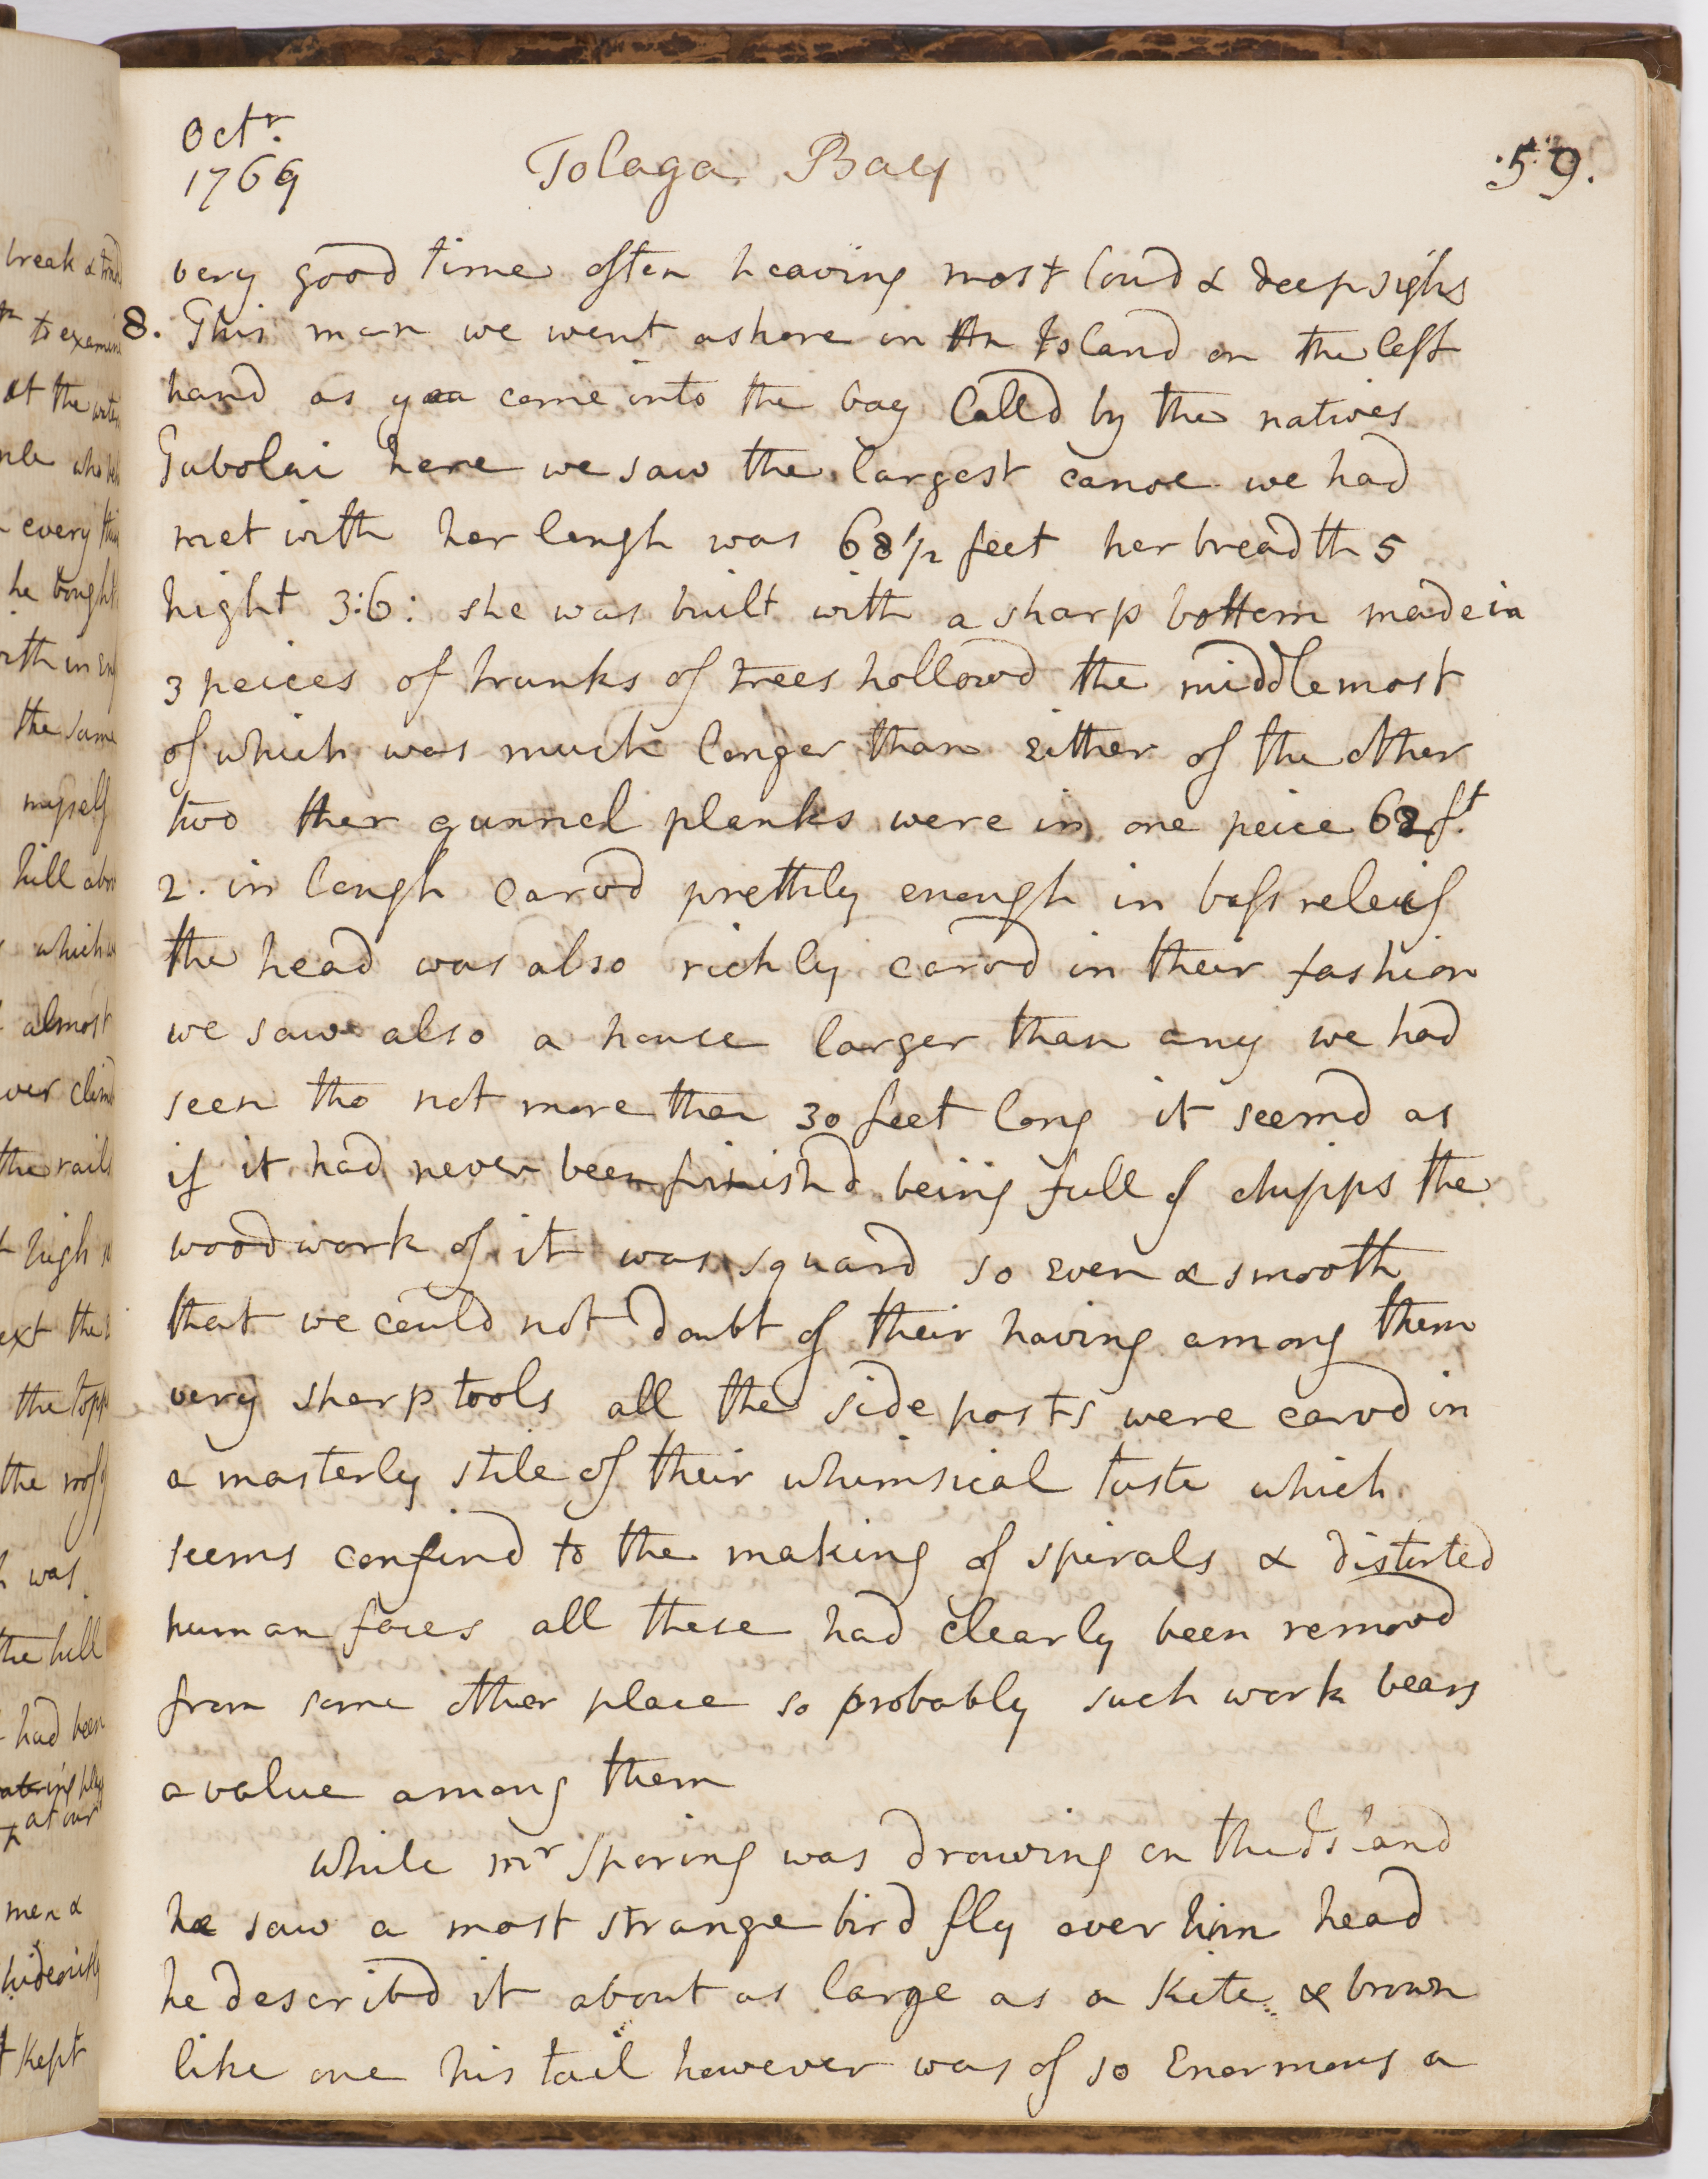 Octr.
1769
Tolaga Bay
59.
very good time often heaving most loud & deep sighs
8. This morn we went ashore on An Island on the left
hand as you come into the bay Calld by the natives
Tubolai here we saw the largest canoe we had
met with her lengh was 68 1/2 feet her breadth 5
hight 3:6: she was built with a sharp bottom made in
3 peices of trunks of trees hollowd the middlemost
of which was much longer than either of the other
two ther gunnel planks were in one peice 62 ft.
2. in lengh carvd prettily enough in bass releif
the head was also richly carvd in their fashion
we saw also a house larger than any we had
seen tho not more than 30 feet long it seemd as
if it had never been finishd being full of chipps the
woodwork of it was squard so even & smooth
that we could not doubt of their having among them
very sharp tools all the side posts were carvd in
a masterly stile of their whimsical taste which
seems confind to the making of spirals & distorted
human faces all these had clearly been removd
from some other place so probably such work bears
a value among them
While mr Sporing was drawing on the Island
he saw a most strange bird fly over him head
he describd it about as large as a Kite & brown
like one his tail however was of so Enormous a
break &
to examine
at the
who
every
he bought
the same
myself
hill
which
almost
over
the rails
high
the
the
the
was
the hill
had been
at our
men &
hideously
kept